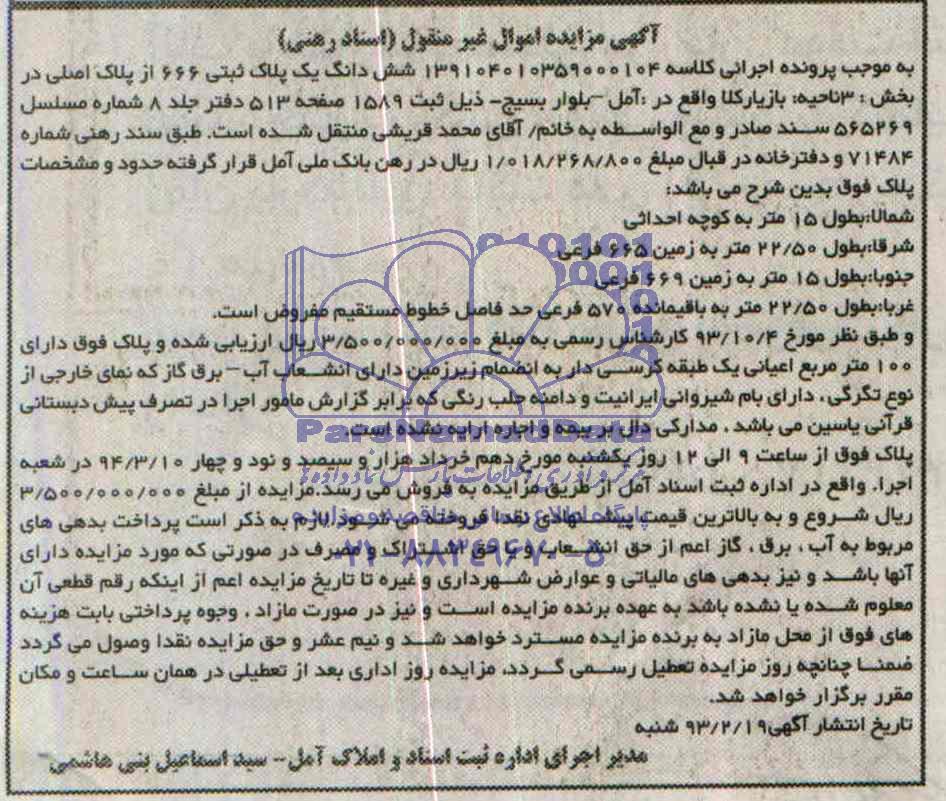 آگهی مزایده اموال غیر منقول (اسناد رهنی)
به موجب پرونده اجرائی کلاسه ۱۳۹۱۰۴۰۱۰۳۵۹۰۰۰۱۰۴ شش دانگ یک پلاک ثبتی ۶۶۶ از پلاک اصلی در
بخش : ۳ناحیه: بازیارکلا واقع در :آمل –بلوار بسیج- ذیل ثبت ۱۵۸۹ صفحه ۵۱۳ دفتر جلد ۸ شماره مسلسل
۵۶۵۲۶۹ سند صادر و مع الواسطه به خانم/ آقای محمد قریشی منتقل شده است. طبق سند رهنی شماره
۷۱۴۸۴ و دفترخانه در قبال مبلغ ۱/۰۱۸/۲۶۸/۸۰۰ ریال در رهن بانک ملی آمل قرار گرفته حدود و مشخصات
پلاک فوق بدین شرح می باشد:
شمالا:بطول ۱۵ متر به کوچه احداثی
شرقا:بطول ۲۲/۵۰ متر به زمین ۶۶۵ فرعی
جنوبا:بطول ۱۵ متر به زمین ۶۶۹ فرعی
غربا:بطول ۲۲/۵۰ متر به باقیمانده ۵۷۰ فرعی حد فاصل خطوط مستقیم مفروض است.
و طبق نظر مورخ ۹۳/۱۰/۴ کارشناس رسمی به مبلغ ۳/۵۰۰/۰۰۰/۰۰۰ ریال ارزیابی شده و پلاک فوق دارای
۱۰۰ متر مربع اعیانی یک طبقه کرسی دار به انضمام زیرزمین دارای انشعاب آب – برق گاز که نمای خارجی از
نوع تگرگی، دارای بام شیروانی ایرانیت و دامنه حلب رنگی که برابر گزارش مامور اجرا در تصرف پیش دبستانی
قرآنی یاسین می باشد ، مدارکی دال بر بیمه و اجاره ارایه نشده است.
پلاک فوق از ساعت ۹ الی ۱۲ روز یکشنبه مورخ دهم خرداد هزار و سیصد و نود و چهار ۹۴/۳/۱۰ در شعبه
اجرا. واقع در اداره ثبت اسناد آمل از طریق مزایده به فروش می رسد.مزایده از مبلغ ۳/۵۰۰/۰۰۰/۰۰۰
ریال شروع و به بالاترین قیمت پیشنهادی نقدا فروخته می شود لازم به ذکر است پرداخت بدهی های
مربوط به آب ، برق ، گاز اعم از حق انشعاب و یا حق اشتراک و مصرف در صورتی که مورد مزایده دارای
آنها باشد و نیز بدهی های مالیاتی و عوارض شهرداری و غیره تا تاریخ مزایده اعم از اینکه رقم قطعی آن
معلوم شده یا نشده باشد به عهده برنده مزایده است و نیز در صورت مازاد ، وجوه پرداختی بابت هزینه
های فوق از محل مازاد به برنده مزایده مسترد خواهد شد و نیم عشر و حق مزایده نقدا وصول می گردد
ضمنا چنانچه روز مزایده تعطیل رسمی گردد، مزایده روز اداری بعد از تعطیلی در همان ساعت و مکان
مقرر برگزار خواهد شد.
تاریخ انتشار آگهی۹۳/۲/۱۹ شنبه
مدیر اجرای اداره ثبت اسناد و املاک آمل – سید اسماعیل بنی هاشمی
ParsNamadData